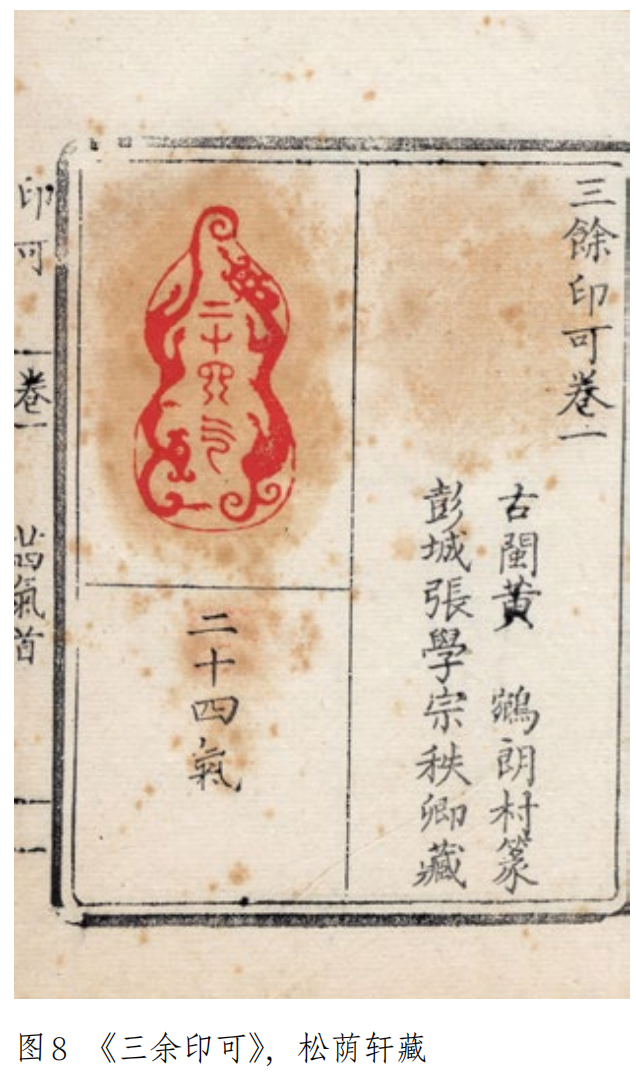 三餘印可卷一
古閩黄 鵷朗村篆
彭城張學宗秩卿藏
二十四气
二十四氣
印可 卷一 廿四氣首
图8 《三余印可》，松荫轩藏